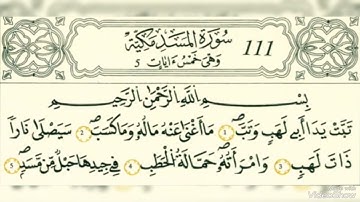 سورة المسد مكية
111
وهي خمس ءايات 5
بِسْمِ اللَّهِ الرَّحْمَٰنِ الرَّحِيمِ
تَبَّتْ يَدَا أَبِي لَهَبٍ وَتَبَّ 1 مَا أَغْنَىٰ عَنْهُ مَالُهُ وَمَا كَسَبَ 2 سَيَصْلَىٰ نَارًا
ذَاتَ لَهَبٍ 3 وَامْرَأَتُهُ حَمَّالَةُ الْحَطَبِ 4 فِي جِيدِهَا حَبْلٌ مِّن مَّسَدٍ 5
VideoShow